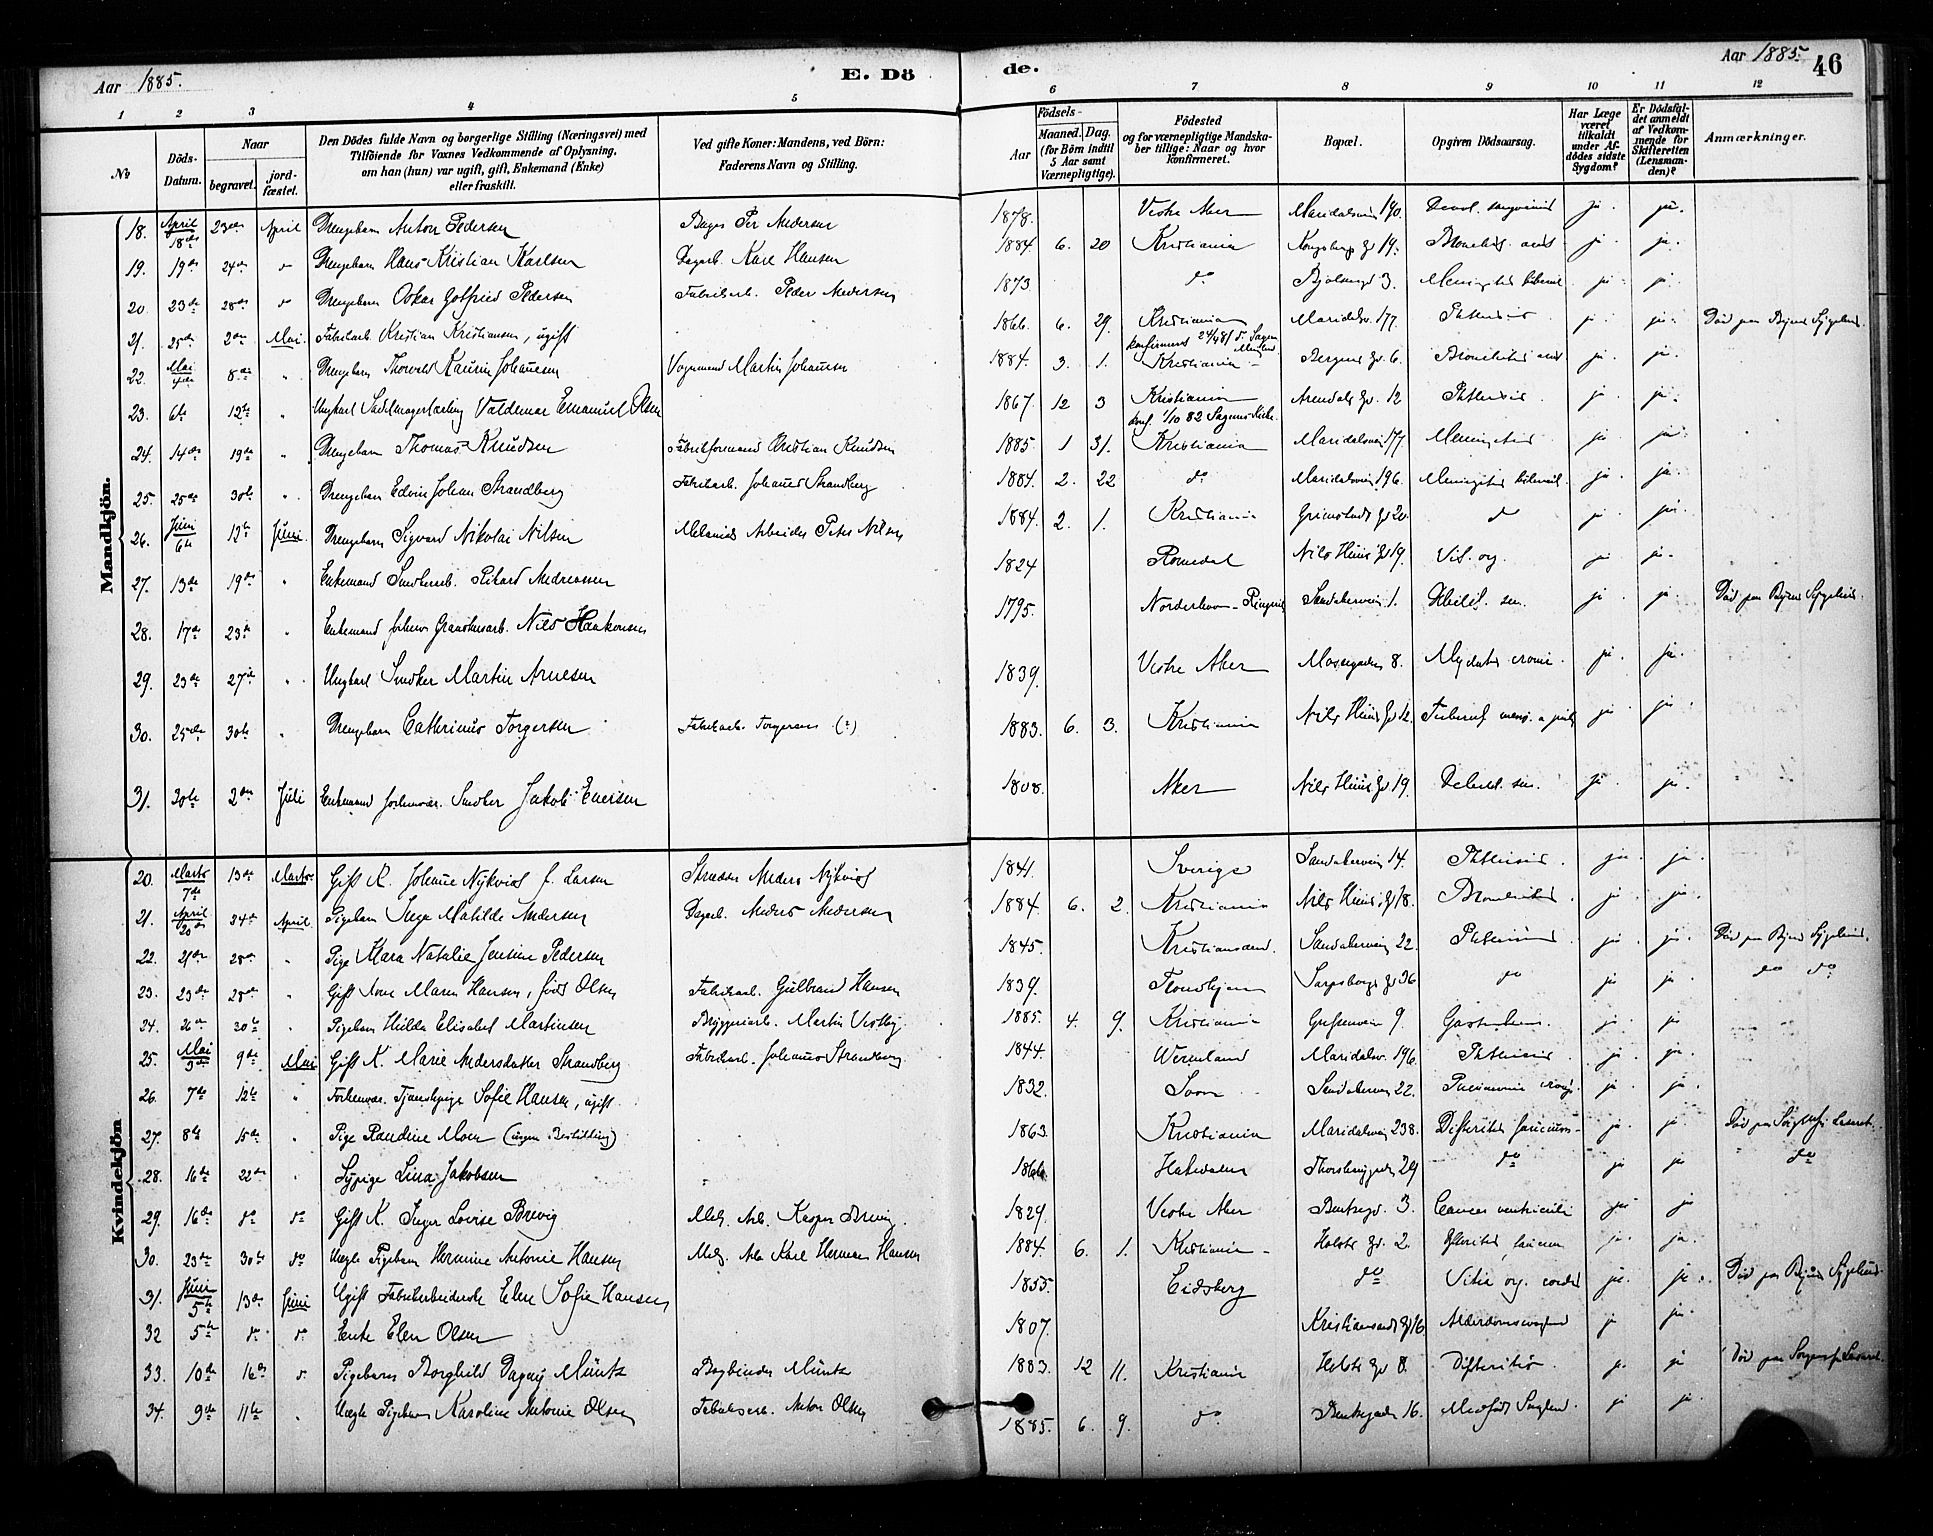 Aar 1885.
E. Dö
de.
Aar 1885. 46
1 2 3 4 5 6 7 8 9 10 11 12
No
Döds-Datum.
Naar
begravet.
jord-fæstet.
Den Dödes fulde Navn og borgerlige Stilling (Næringsvei) med
Tilföiende for Voxnes Vedkommende af Oplysning,
om han (hun) var ugift, gift, Enkemand (Enke)
eller fraskilt.
Ved gifte Koner: Mandens, ved Börn:
Faderens Navn og Stilling.
Födsels-
Aar
Maaned. Dag.
(for Börn indtil
5 Aar samt
Værnepligtige).
Födested
og for værnepligtige Mandska-
ber tillige: Naar og hvor
konfirmeret.
Bopæl.
Opgiven Dödsaarsag.
Har Læge
været
tilkaldt
under Af-
dödes sidste
Sygdom?
Er Dödsfal-
det anmeldt
af Vedkom-
mende for
Skifteretten
(Lensman-
den)?
Anmærkninger.
Mandkjön.
18. April 18de 23de April Drengebarn Anton Pedersen Per Andersen 1878. Vestre Aker Maridalsvein 190. ja. ja.
19. 19de 24de Drengebarn Hans Kristian Karlsen Dagarb. Karl Hansen 1884 6. 20 Kristiania Kongsbergs Gd 19. ja. ja.
20. 23de 28de Drengebarn Oskar Gotfried Pedersen Fabrikarb. Peder Andersen 1873 do 3. ja. ja.
21. 25de 2den Mai. Fabrikarb. Kristian Kristiansen, ugift 1866 6. 29. Kristiania Maridalsv. 177. Phthisis ja. Död paa Rigets Sygehus.
konfirmeret
22. Mai 4de 8de " Drengebarn Thorvald Kaurin Johansen Vognmand Martin Johansen 1884 3. 1. Kristiania Bergens Gd. 6. ja. ja.
23. 6te 12te " Ungkarl Sadelmagerlærling Valdemar Emanuel Olsen 1867 12 3 Kristiania Arendals Gd. 12 Phthisis ja. ja.
konf. 1/10 82 Sagenes Kirke
24. 14de 19de " Drengebarn Thomas Knudsen Fabrikformand Kristian Knudsen 1885. 1 31. Kristiania Maridalsvein 177. Meningitis ja. ja.
25. 25de 30te " Drengebarn Edvin Johan Strandberg Fabrikarb. Johannes Strandberg 1884. 2. 22 do Maridalsvein 196. Meningitis ja. ja.
26. Juni 6te 12te Juni. Drengebarn Sigvard Nikolai Nilsen Arbeider Peter Nilsen 1884. 2. 1. Kristiania Grimstads Gd 20. do ja. ja.
27. 13de 19de " Enkemand Rikard Andreassen 1824 Romedal Nils Huus' Gd 19. Vit. org. ja ja.
28. 17de 23de " Enkemand Nils Haakonsen 1795. Norderhov - Ringerike Sandakerveien 1. Debilit. sen. ja ja. Död paa Rigets Sygehus.
29. 23de 27de " Ungkarl Snedker Martin Arnesen 1839. Vestre Aker Mossegaden 8. ja. ja.
30. 25de 30te " Drengebarn Cathrinus Torgersen Fabrikarb. Torgersen (?) 1883. 6. 3. Kristiania Nils Huus' Gd 12. ja. ja.
31. 30te 2den Juli Enkemand forhenvær. Snedker Jakob Eneisen 1808. Aker Nils Huus' Gd 19. Debilit. sen. ja. ja.
Kvindekjön
20. Marts 7de 13de Marts. Gift K. Johanne Nykvist f. Larsen Skrædder Anders Nykvist 1841. Sverige Sandakerveien 14. Phthisis. ja. ja.
21. April 20de 24de April Pigebarn Inga Matilde Andersen Dagarb. Anders Andersen 1884. 6. 2. Kristiania Nils Huus' Gd 18. Bronchitis ja. ja.
22. 21de 28de " Pige Klara Natalie Jensine Pedersen 1845. Kristiansand. Sandakerveien 22. Phthisis ja. ja. Död paa Rigets Sygehus.
23. 23de 28de " Gift Anne Maren Hansen, född Olsen Fabrikarb. Gulbrand Hansen 1839. Trondhjem Sarpsborgs Gd 36 do ja ja. do do
24. 26de 30te " Pigebarn Hulda Elisabet Martinsen Bryggeriarb. Martin Vestby. 1885. 4. 9. Kristiania Grefsenveien 9. ja. ja
25. Mai 3die 9de Mai Gift K. Marie Andersdatter Strandberg Fabrikarb. Johannes Strandberg 1844. Wermland Maridalsv. 196. Phthisis. ja. ja.
26. 7de 12te " Forhenvær. Tjenestepige Sofie Hansen, ugift 1832. Sandakerveien 22. Pneumonia ja. ja.
27. 8de 15de " Pige Randine Moen (ingen Bestilling) 1863. Kristiania Maridalsveien 238. Difteritis faucium ja. ja.
28. 16de 22de " Sypige Lina Jakobsen 1866 Hakedalen 29 do ja ja do
29. 16de do do Gift K. Inger Lovise Brevig Mek. Arb. Kasper Brevig. 1829. Vestre Aker Bentsegd. 3. Cancer ventriculi ja ja
30. 23de 30te do Uægte Pigebarn Hermine Antonie Hansen Mek. Arb. Karl Herman Hansen 1884. 6. 1. Kristiania Holsts Gd. 2. ja. ja.
31. Juni 5te 13de Juni Ugift Fabrikarbeiderske Elen Sofie Hansen 1855. Eidsberg do Vitie org. cordis ja. ja. Död paa Rigets Sygehus.
32 5te do do Enke Elen Olsen 1807. Kristiansands Gd 16. Alderdomssvaghed ja ja.
33. 10de 16de do Pigebarn Borghild Dagny Müntz Bogbinder Müntz 1883. 12 11. Kristiania Holsts Gd 8. Difteritis. ja. ja
34. 9de 11te " Uægte Pigebarn Karoline Antonie Olsen Fabrikarb. Anton Olsen 1885. 6. 9. do Bentsegaden 16. Medfødt Svaghed. ja ja.